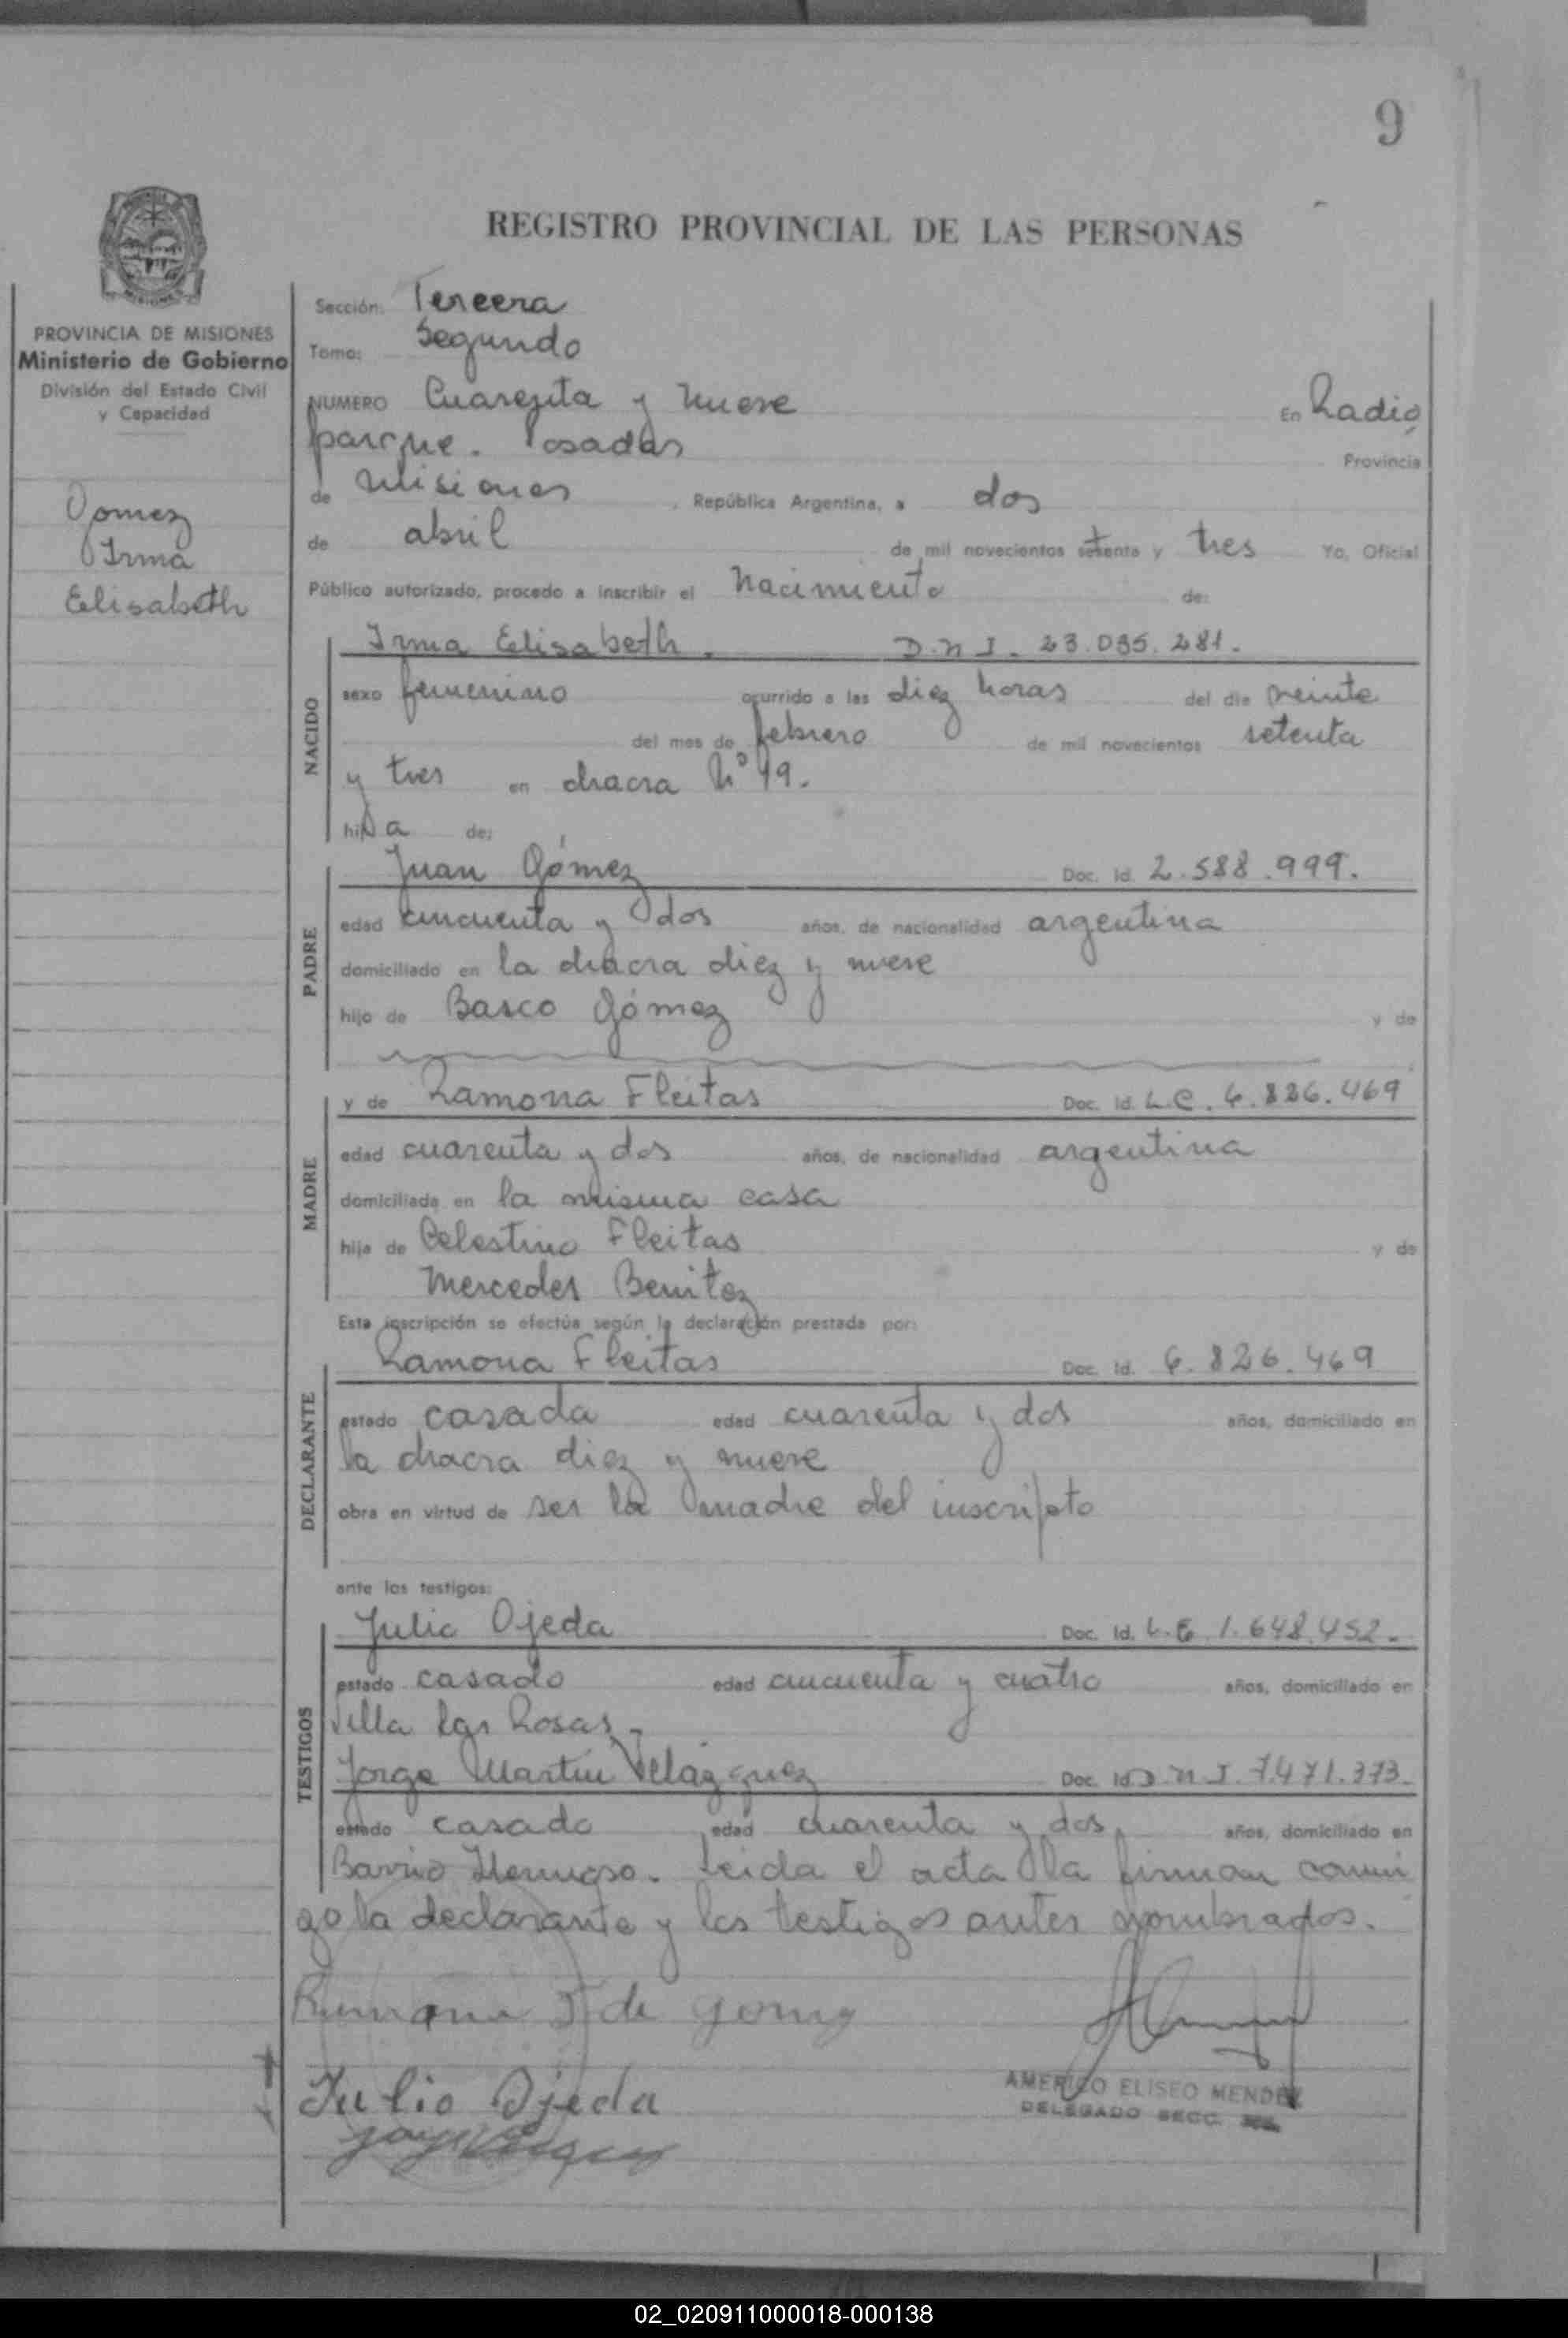 9
REGISTRO PROVINCIAL DE LAS PERSONAS
PROVINCIA DE MISIONES
Ministerio de Gobierno
División del Estado Civil
y Capacidad
Gomez
Irma
Elisabeth
Sección: Tercera
Tomo: Segundo
NUMERO Cuarenta y nueve En Radio
parque. Posadas Provincia
de Misiones , República Argentina, a dos
de abril de mil novecientos setenta y tres Yo, Oficial
Público autorizado, procedo a inscribir el Nacimiento de:
NACIDO
Irma Elisabeth. D.N.I. 23.095.281.
sexo femenino ocurrido a las diez horas del día veinte
del mes de febrero de mil novecientos setenta
y tres en chacra Nº 19.
hija de:
PADRE
Juan Gómez Doc. Id. 2.588.999.
edad cincuenta y dos años, de nacionalidad argentina
domiciliado en la chacra diez y nueve
hijo de Basco Gómez y de
MADRE
y de Ramona Fleitas Doc. Id. L.C. 6.826.469
edad cuarenta y dos años, de nacionalidad argentina
domiciliada en la misma casa
hija de Celestino Fleitas y de
Mercedes Benitez
Esta inscripción se efectúa según la declaración prestada por:
DECLARANTE
Ramona Fleitas Doc. Id. 6.826.469
estado casada edad cuarenta y dos años, domiciliado en
la chacra diez y nueve
obra en virtud de ser la madre del inscripto
ante los testigos:
TESTIGOS
Julio Ojeda Doc. Id. L.E. 1.648.452.
estado casado edad cincuenta y cuatro años, domiciliado en
Villa las Rosas.
Jorge Martín Velázquez Doc. Id. D.N.I. 7.471.373.
estado casado edad cuarenta y dos, años, domiciliado en
Barrio Hermoso. Leida el acta la firman conmi
go la declarante y los testigos antes nombrados.
Ramona F de Gomez
Julio Ojeda
AMERICO ELISEO MENDEZ
DELEGADO SECC.
02_020911000018-000138